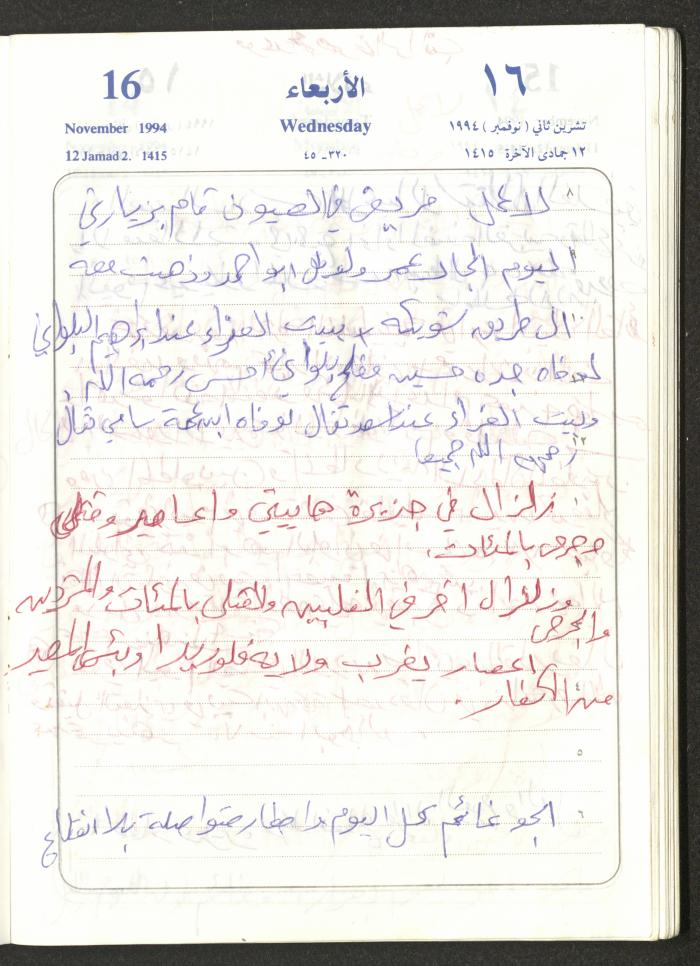 16 الأربعاء ١٦
November 1994 Wednesday تشرين ثاني ( نوفمبر ) ١٩٩٤
12 Jamad2. 1415 ٣٢٠-٤٥ ١٢ جمادى الآخرة ١٤١٥
٨ لا عمل في العيون قام بزيارتي
اليوم عمر ابو احمد وذهبت معه
الى طريق شويكه بيت العزاء عند ابراهيم
لوفاه جده حسين مفلح أمس رحمه الله
وبيت العزاء عند لوفاه ابن عمة سامي
١٢ رحمهم الله جميعا
١ زلزال في جزيرة هاييتي واعاصير وقتلى
وجرحى بالمئات.
وزلزال آخر في الفلبين والقتلى بالمئات والمشردين
والجرحى
اعصار يضرب ولاية فلوريدا وبئس المصير
٤ من الكفار.
٥
٦ الجو غائم كل اليوم وامطار متواصلة بلا انقطاع